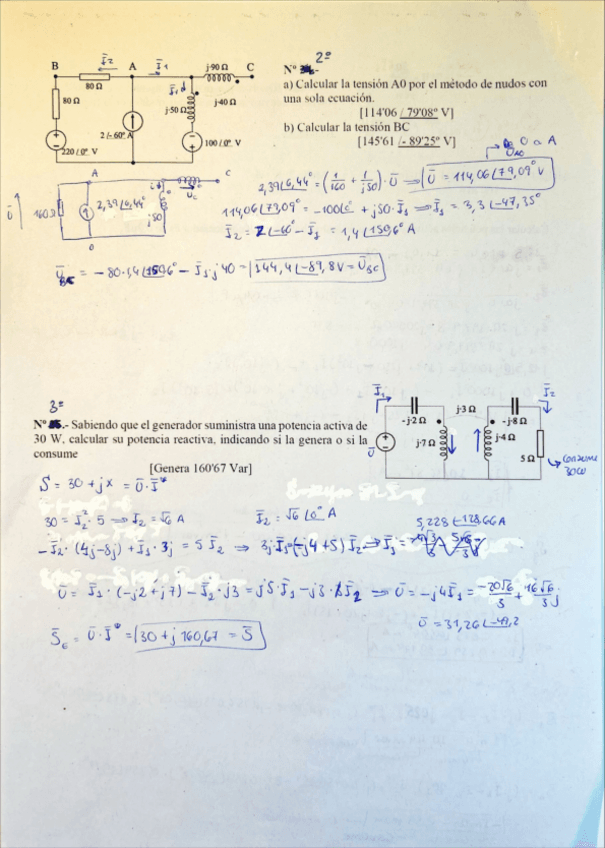 2º
Nº
B
A
C
I₂
I₁
80 Ω
j·90 Ω
80 Ω
j·50 Ω
j·40 Ω
2/-60º A
220/0º V
100/0º V
a) Calcular la tensión A0 por el método de nudos con
una sola ecuación.
[114'06 /79'08º V]
b) Calcular la tensión BC
[145'61 /- 89'25º V]
0 a A
A
C
Ū
160Ω
2,39∠6,44º
j50
0
2,39∠6,44º = (1/160 + 1/j50)·Ū ⇒ Ū = 114,06∠79,09º V
114,06∠79,09º = -100∠0º + j50·Ī₁ ⇒ Ī₁ = 3,3∠-47,35º
Ī₂ = 2∠-60º - Ī₁ = 1,4∠150,6º A
Ū_BC = -80·1,4∠150,6º - Ī₁·j40 = 144,4∠-89,8 V = Ū_BC
3º
Nº .- Sabiendo que el generador suministra una potencia activa de
30 W, calcular su potencia reactiva, indicando si la genera o si la
consume
[Genera 160'67 Var]
Ī₁
Ī₂
-j·2 Ω
j·3 Ω
-j·8 Ω
j·7 Ω
j·4 Ω
5 Ω
Ū
consume
30W
S = 30 + jX = Ū·Ī*
30 = I₂²·5 ⇒ I₂ = √6 A
Ī₂ = √6∠0º A
5,228∠-128,66 A
-Ī₂·(4j-8j) + Ī₁·3j = 5Ī₂ ⇒ 3j·Ī₁ = (-j4+5)Ī₂ ⇒ Ī₁ =
Ū = Ī₁·(-j2+j7) - Ī₂·j3 = j5·Ī₁ - j3·Ī₂ ⇒ Ū = -j4Ī₁ = -20√6/5 + 16√6/5 j
Ū = 31,26∠-49,2
S̄ = Ū·Ī* = 30 + j160,67 = S̄